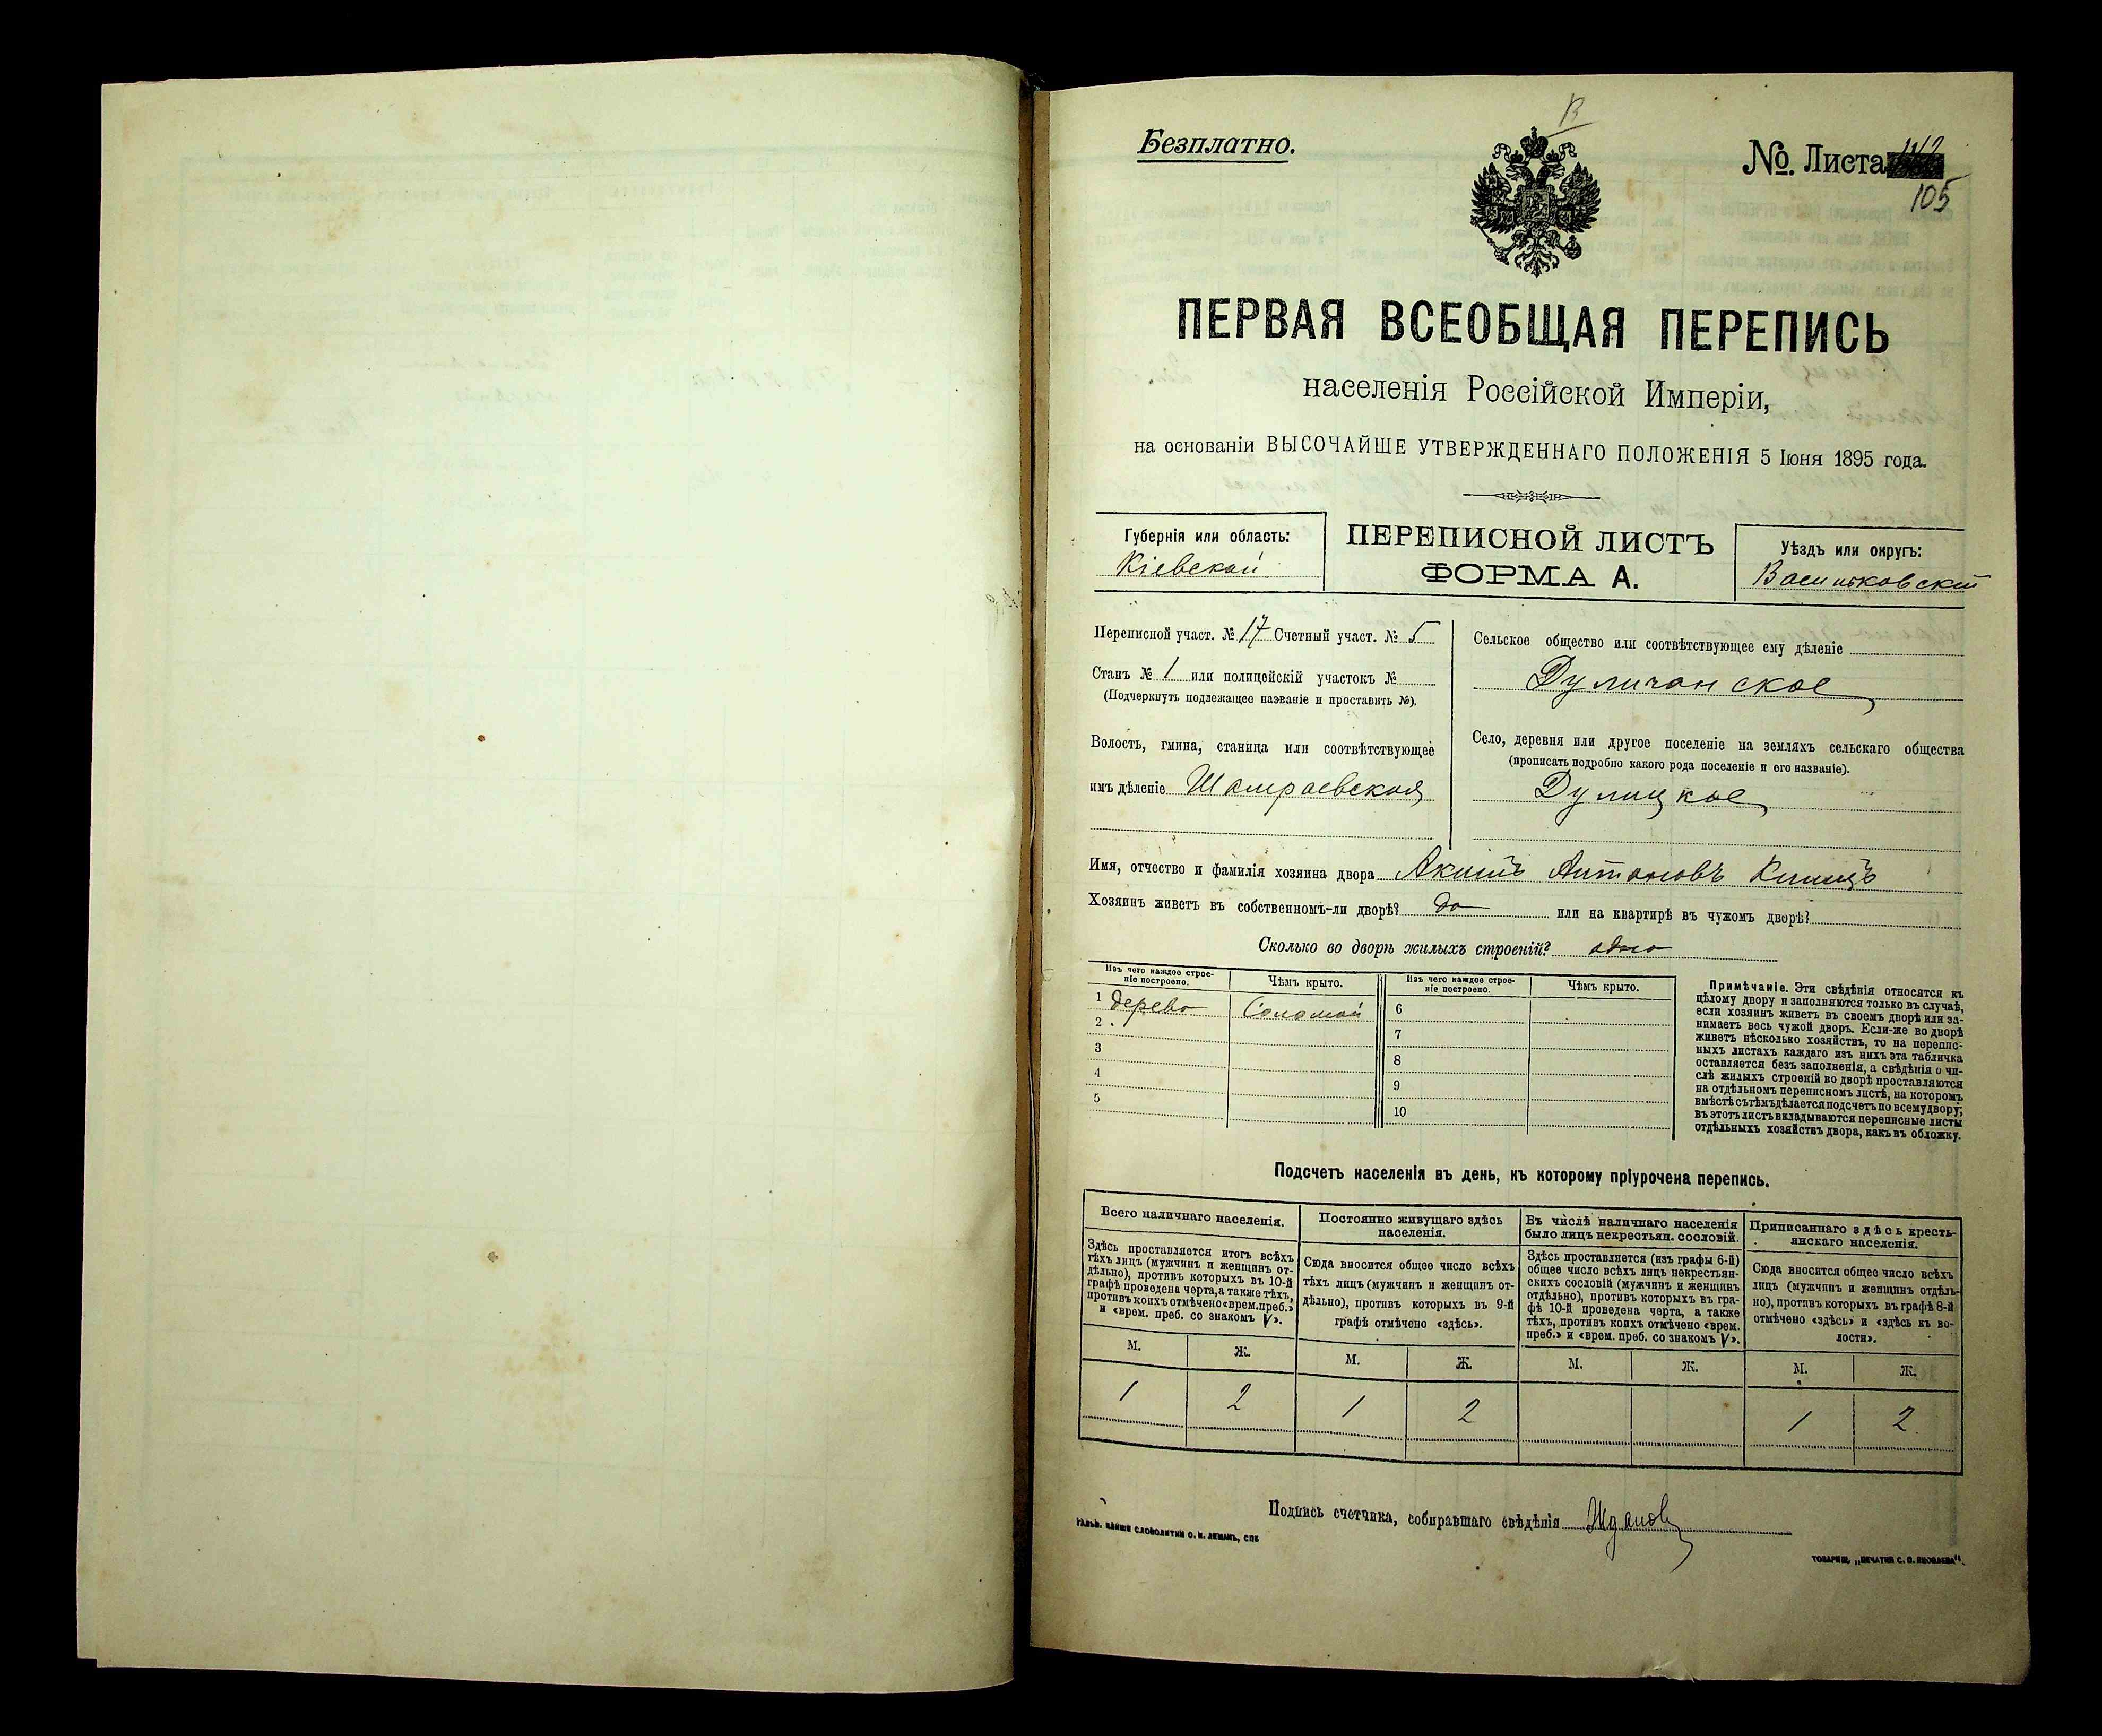 Безплатно.
№. Листа
105
ПЕРВАЯ ВСЕОБЩАЯ ПЕРЕПИСЬ
населенія Россійской Имперіи,
на основаніи ВЫСОЧАЙШЕ УТВЕРЖДЕННАГО ПОЛОЖЕНІЯ 5 Іюня 1895 года.
Губернія или область:
Кіевской
ПЕРЕПИСНОЙ ЛИСТЪ
ФОРМА А.
Уѣздъ или округъ:
Васильковскій
Переписной участ. № 17 Счетный участ. № 5
Станъ № 1 или полицейскій участокъ №
(Подчеркнуть подлежащее названіе и проставить №).
Волость, гмина, станица или соотвѣтствующее
имъ дѣленіе Шамраевская
Сельское общество или соотвѣтствующее ему дѣленіе
Дуличанское
Село, деревня или другое поселеніе на земляхъ сельскаго общества
(прописать подробно какого рода поселеніе и его названіе).
Дулицкое
Имя, отчество и фамилія хозяина двора Акимъ Антоновъ
Хозяинъ живетъ въ собственномъ-ли дворѣ? да или на квартирѣ въ чужомъ дворѣ?
Сколько во дворѣ жилыхъ строеній? одно
Изъ чего каждое строе-
ніе построено.
Чѣмъ крыто.
Изъ чего каждое строе-
ніе построено.
Чѣмъ крыто.
1 дерево Соломой
2
3
4
5
6
7
8
9
10
Примѣчаніе. Эти свѣдѣнія относятся къ
цѣлому двору и заполняются только въ случаѣ,
если хозяинъ живетъ въ своемъ дворѣ или за-
нимаетъ весь чужой дворъ. Если-же во дворѣ
живетъ нѣсколько хозяйствъ, то на перепис-
ныхъ листахъ каждаго изъ нихъ эта табличка
оставляется безъ заполненія, а свѣдѣнія о чи-
слѣ жилыхъ строеній во дворѣ проставляются
на отдѣльномъ переписномъ листѣ, на которомъ
вмѣстѣ съ тѣмъ дѣлается подсчетъ по всему двору;
въ этотъ листъ вкладываются переписные листы
отдѣльныхъ хозяйствъ двора, какъ въ обложку.
Подсчетъ населенія въ день, къ которому пріурочена перепись.
Всего наличнаго населенія.
Здѣсь проставляется итогъ всѣхъ
тѣхъ лицъ (мужчинъ и женщинъ от-
дѣльно), противъ которыхъ въ 10-й
графѣ проведена черта, а также тѣхъ,
противъ коихъ отмѣчено «врем. преб.»
и «врем. преб. со знакомъ V».
Постоянно живущаго здѣсь
населенія.
Сюда вносится общее число всѣхъ
тѣхъ лицъ (мужчинъ и женщинъ от-
дѣльно), противъ которыхъ въ 9-й
графѣ отмѣчено «здѣсь».
Въ числѣ наличнаго населенія
было лицъ некрестьян. сословій.
Здѣсь проставляется (изъ графы 6-й)
общее число всѣхъ лицъ некрестьян-
скихъ сословій (мужчинъ и женщинъ
отдѣльно), противъ которыхъ въ гра-
фѣ 10-й проведена черта, а также
тѣхъ, противъ коихъ отмѣчено «врем.
преб.» и «врем. преб. со знакомъ V».
Приписаннаго здѣсь кресть-
янскаго населенія.
Сюда вносится общее число всѣхъ
лицъ (мужчинъ и женщинъ отдѣль-
но), противъ которыхъ въ графѣ 8-й
отмѣчено «здѣсь» и «здѣсь къ во-
лости».
М. Ж. М. Ж. М. Ж. М. Ж.
1 2 1 2 1 2
Подпись счетчика, собиравшаго свѣдѣнія Ждановъ